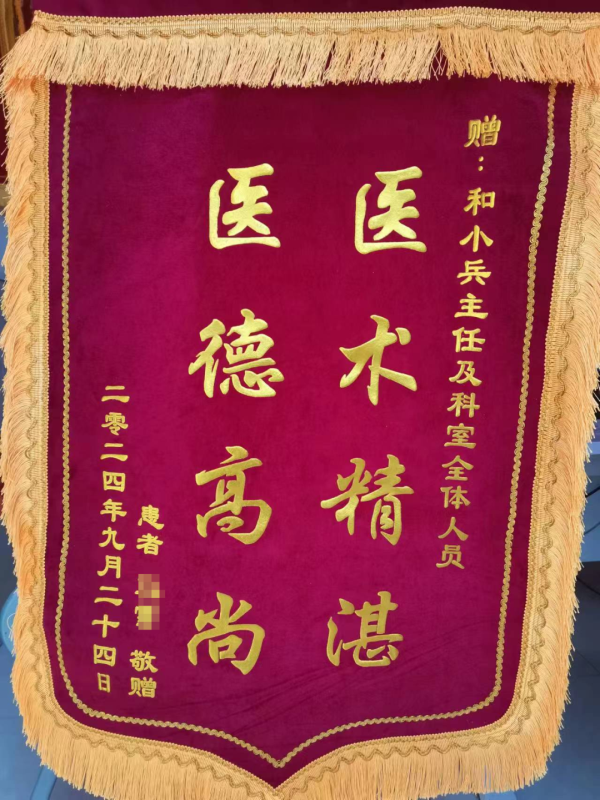 赠：和小兵主任及科室全体人员
医术精湛
医德高尚
患者 敬赠
二零二四年九月二十四日